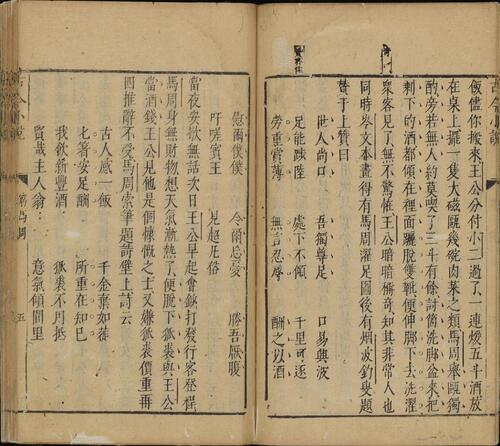 剩儘你搬來王公分付小二過了一連煖五斗酒放
在桌上擺一隻大磁甌幾碗肉菜之類馬周舉甌獨
酌旁若無人約莫喫了三斗有餘討個洗脚盆來把
剩下的酒都傾在裡面𨇾脫雙靴便伸脚下去洗濯
衆客見了無不驚怪王公暗暗稱奇知其非常人也
同時岑文本畫得有馬周濯足圖後有烟波釣叟題
贊于上贊曰
世人尚口 吾獨尊足
口易興波 足能踄陸
處下不傾 千里可逐
勞重賞薄 無言忍辱
酬之以酒
慰爾僕僕 令爾忘憂 勝吾厭腹
吁嗟賓王 見超凡俗
當夜安歇無話次日王公早起會鈔打發行客登程
馬周身無財物想天氣漸熱了便脫下狐裘與王公
當酒錢王公見他是個慷慨之士又嫌狐裘價重再
四推辭不受馬周索筆題詩壁上詩云
古人感一飯 千金棄如蓰
匕箸安足酬 所重在知己
我飲新豐酒 狐裘不用抵
賢哉主人翁 意氣傾閭里
馬周
五